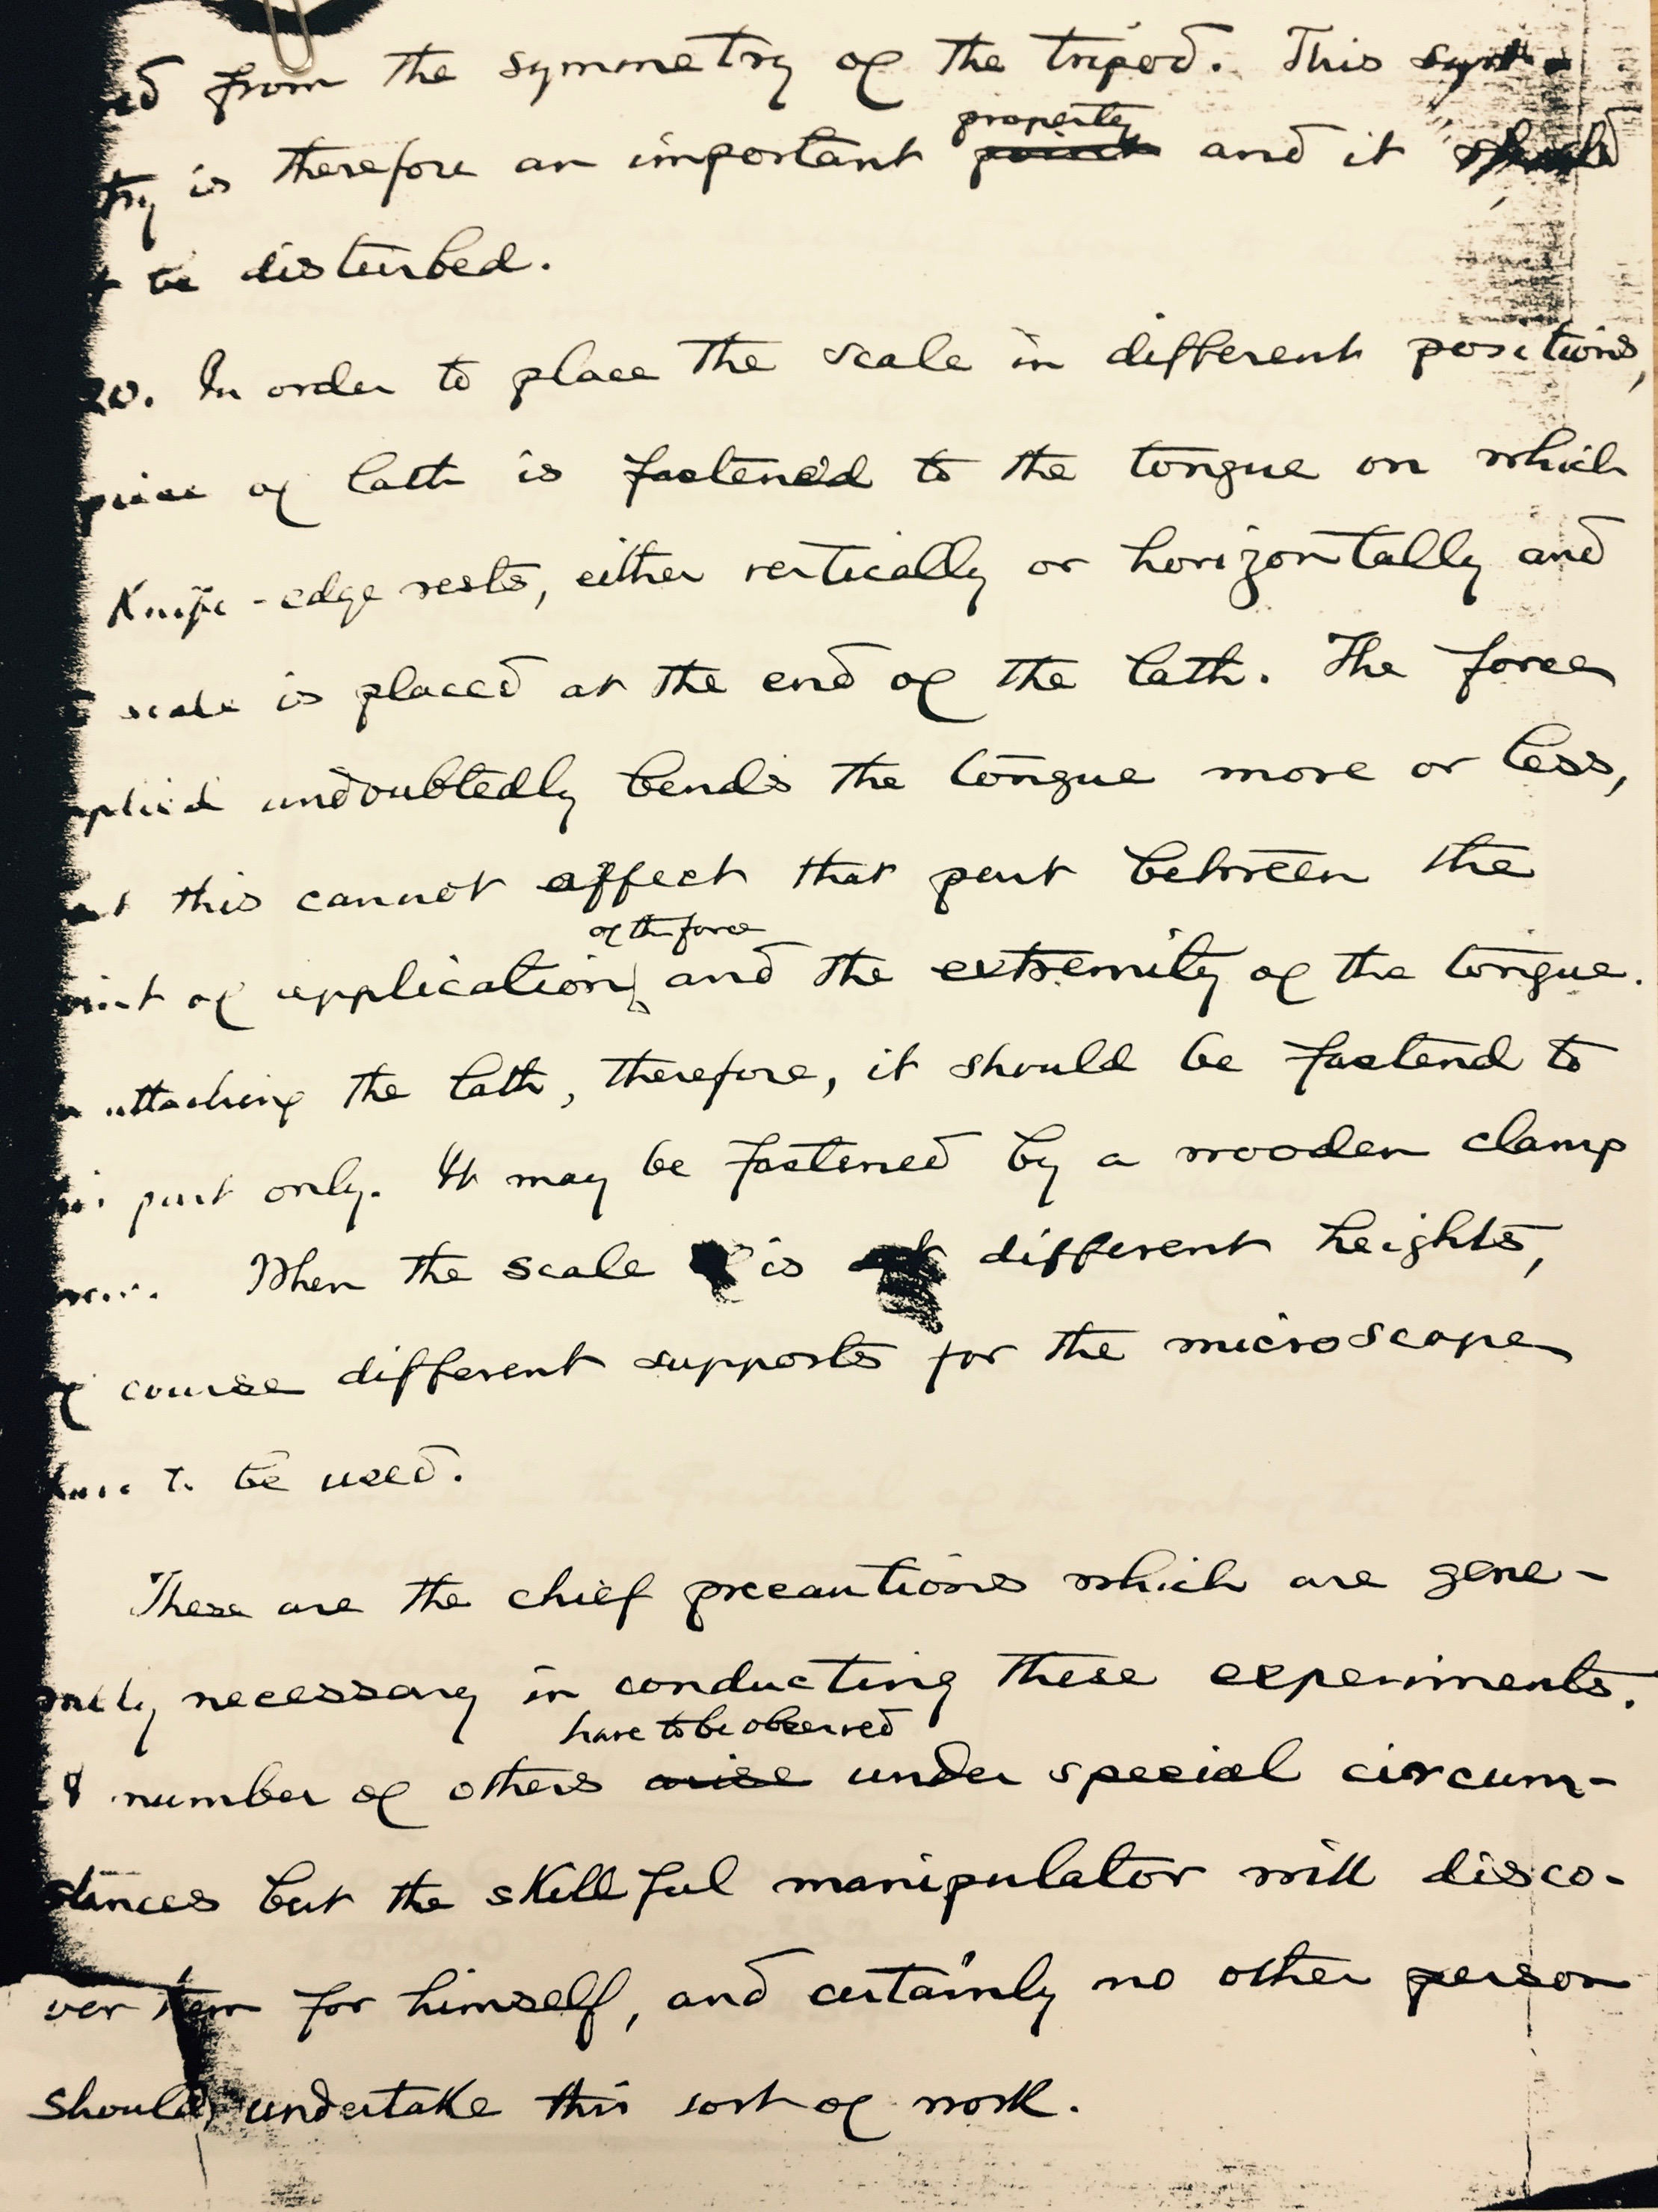 from the symmetry of the tripod. This
property
try is therefore an important point and it should
be disturbed.
20. In order to place the scale in different positions,
piece of lath is fastened to the tongue on which
Knife-edge rests, either vertically or horizontally and
scale is placed at the end of the lath. The force
pplied undoubtedly bends the tongue more or less,
this cannot affect that part between the
of the force
oint of application and the extremity of the tongue.
attaching the lath, therefore, it should be fastend to
part only. It may be fastened by a wooden clamp
When the scale is at different heights,
of course different supports for the microscope
have to be used.
These are the chief precautions which are gene-
rally necessary in conducting these experiments.
have to be observed
A number of others arise under special circum-
stances but the skillful manipulator will disco-
ver them for himself, and certainly no other person
should undertake this sort of work.